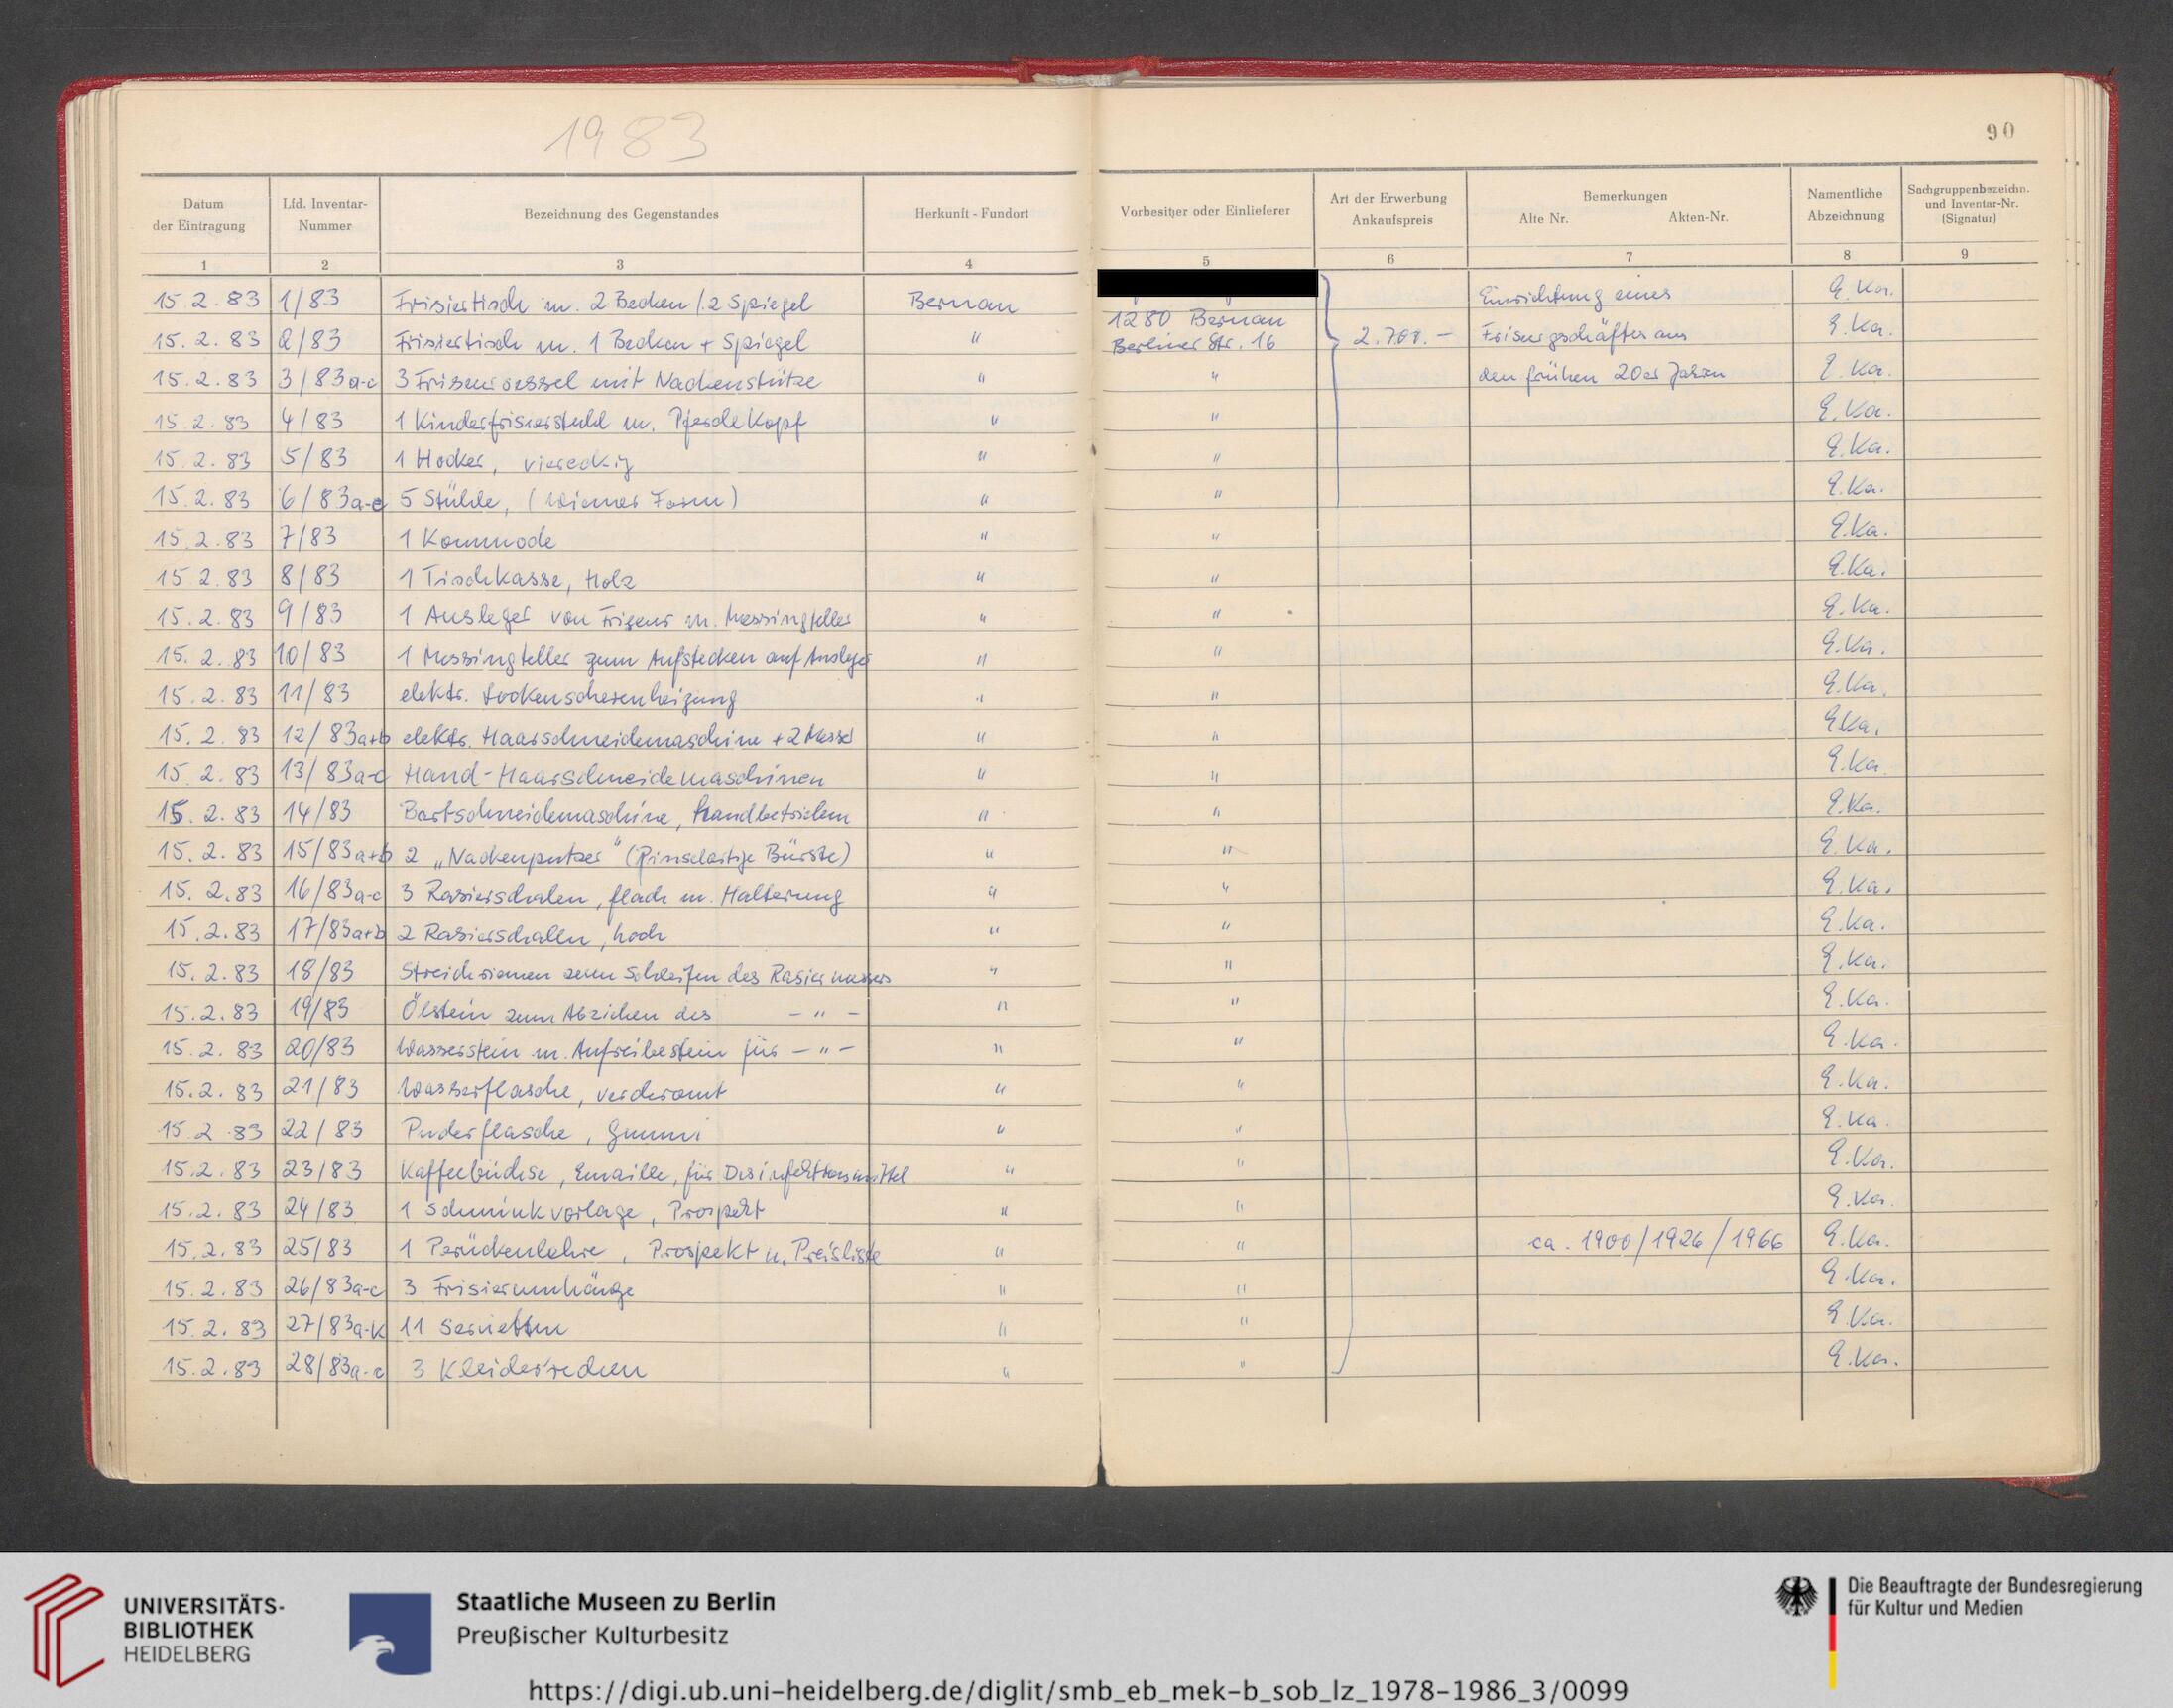 1983
90
Datum der Eintragung | Lfd. Inventar-Nummer | Bezeichnung des Gegenstandes | Herkunft - Fundort | Vorbesitzer oder Einlieferer | Art der Erwerbung Ankaufspreis | Bemerkungen Alte Nr. Akten-Nr. | Namentliche Abzeichnung | Sachgruppenbezeichn. und Inventar-Nr. (Signatur)
1 | 2 | 3 | 4 | 5 | 6 | 7 | 8 | 9
15.2.83 | 1/83 | Frisiertisch m. 2 Becken /. 2 Spiegel | Bernau | 1280 Bernau | Einrichtung eines | E. Ka.
15.2.83 | 2/83 | Frisiertisch m. 1 Becken + Spiegel | " | Berliner Str. 16 | 2.700.- | Friseurgeschäftes aus | E. Ka.
15.2.83 | 3/83a-c | 3 Friseursessel mit Nackenstütze | " | " | den frühen 20er Jahren | E. Ka.
15.2.83 | 4/83 | 1 Kinderfrisierstuhl m. Pferdekopf | " | " | E. Ka.
15.2.83 | 5/83 | 1 Hocker, viereckig | " | " | E. Ka.
15.2.83 | 6/83a-e | 5 Stühle, (Wiener Form) | " | " | E. Ka.
15.2.83 | 7/83 | 1 Kommode | " | " | E. Ka.
15.2.83 | 8/83 | 1 Tischkasse, Holz | " | " | E. Ka.
15.2.83 | 9/83 | 1 Ausleger von Friseur m. Messingteller | " | " | E. Ka.
15.2.83 | 10/83 | 1 Messingteller zum Aufstecken auf Ausleger | " | " | E. Ka.
15.2.83 | 11/83 | elektr. Lockenscherenheizung | " | " | E. Ka.
15.2.83 | 12/83a+b | elektr. Haarschneidemaschine + 2 Messer | " | " | E. Ka.
15.2.83 | 13/83a-c | Hand-Haarschneidemaschinen | " | " | E. Ka.
15.2.83 | 14/83 | Bartschneidemaschine, handbetrieben | " | " | E. Ka.
15.2.83 | 15/83a+b | 2 „Nackenputzer" (Pinselartige Bürste) | " | " | E. Ka.
15.2.83 | 16/83a-c | 3 Rasierschalen, flach m. Halterung | " | " | E. Ka.
15.2.83 | 17/83a+b | 2 Rasierschalen, hoch | " | " | E. Ka.
15.2.83 | 18/83 | Streichriemen zum Schleifen des Rasiermessers | " | " | E. Ka.
15.2.83 | 19/83 | Ölstein zum Abziehen des - " - | " | " | E. Ka.
15.2.83 | 20/83 | Wasserstein m. Aufreibestein für - " - | " | " | E. Ka.
15.2.83 | 21/83 | Wasserflasche, verchromt | " | " | E. Ka.
15.2.83 | 22/83 | Puderflasche, Gummi | " | " | E. Ka.
15.2.83 | 23/83 | Kaffeebüchse, Emaille, für Desinfektionsmittel | " | " | E. Ka.
15.2.83 | 24/83 | 1 Schminkvorlage, Prospekt | " | " | E. Ka.
15.2.83 | 25/83 | 1 Perückenlehre, Prospekt u. Preisliste | " | " | ca. 1900/1926/1966 | E. Ka.
15.2.83 | 26/83a-c | 3 Frisierumhänge | " | " | E. Ka.
15.2.83 | 27/83a-k | 11 Servietten | " | " | E. Ka.
15.2.83 | 28/83a-c | 3 Kleiderrechen | " | " | E. Ka.
UNIVERSITÄTS-
BIBLIOTHEK
HEIDELBERG
Staatliche Museen zu Berlin
Preußischer Kulturbesitz
Die Beauftragte der Bundesregierung
für Kultur und Medien
https://digi.ub.uni-heidelberg.de/diglit/smb_eb_mek-b_sob_lz_1978-1986_3/0099